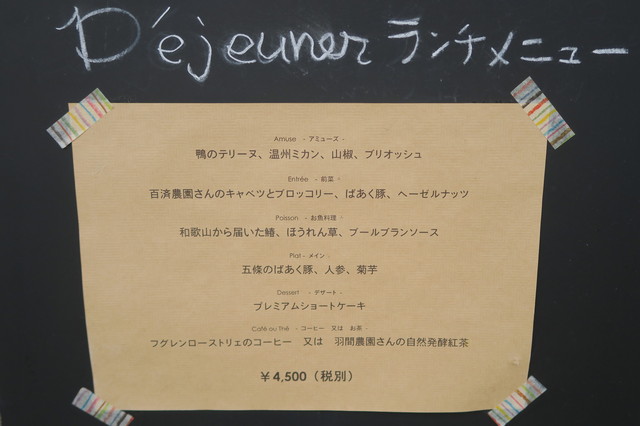 Déjeuner ランチメニュー
Amuse - アミューズ -
鴨のテリーヌ、温州ミカン、山椒、ブリオッシュ
Entrée - 前菜 -
百済農園さんのキャベツとブロッコリー、ばあく豚、ヘーゼルナッツ
Poisson - お魚料理 -
和歌山から届いた鰆、ほうれん草、ブールブランソース
Plat - メイン -
五條のばあく豚、人参、菊芋
Dessert - デザート -
プレミアムショートケーキ
Café ou thé - コーヒー 又は お茶 -
フグレンローストリェのコーヒー 又は 羽間農園さんの自然発酵紅茶
￥4,500（税別）